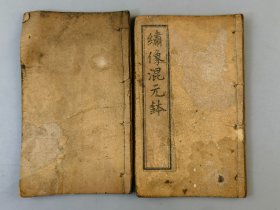 繡像混元鉢